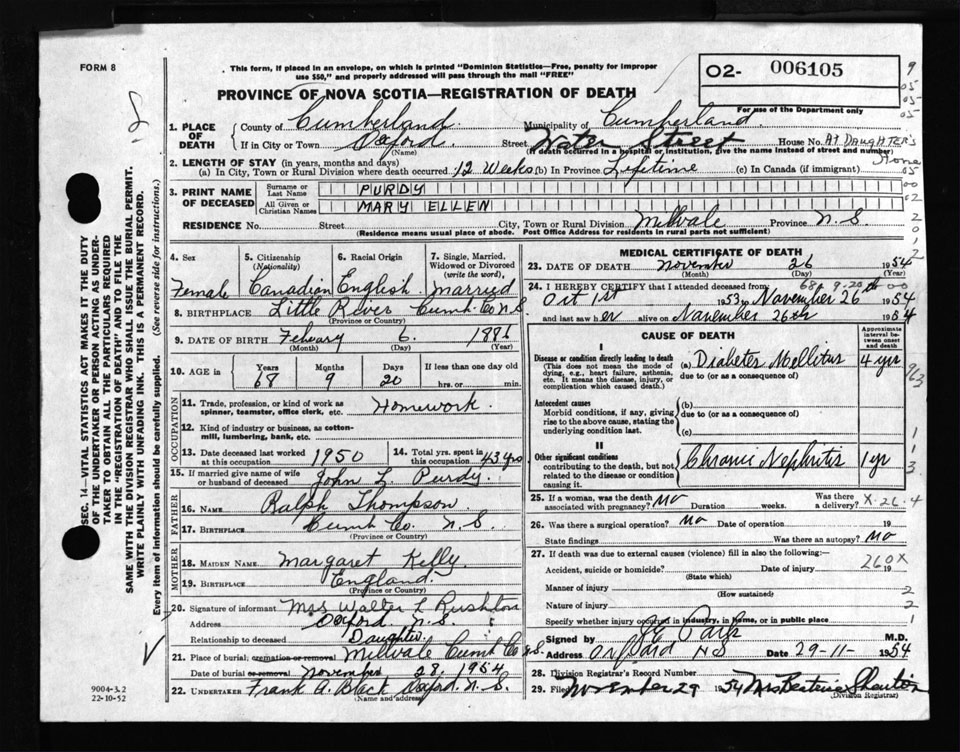 FORM 8
This form, if placed in an envelope, on which is printed "Dominion Statistics—Free, penalty for improper
use $50," and properly addressed will pass through the mail "FREE"
O2- 006105
For use of the Department only
PROVINCE OF NOVA SCOTIA—REGISTRATION OF DEATH
1. PLACE OF DEATH
County of Cumberland Municipality of Cumberland
If in City or Town Oxford Street Water Street House No. At Daughter's Home
(Name) (If death occurred in a hospital or institution, give the name instead of street and number)
2. LENGTH OF STAY (in years, months and days)
(a) In City, Town or Rural Division where death occurred 12 Weeks (b) In Province Lifetime (c) In Canada (if immigrant)
3. PRINT NAME OF DECEASED
Surname or Last Name PURDY
All Given or Christian Names MARY ELLEN
RESIDENCE No. Street City, Town or Rural Division Millvale Province N.S.
(Residence means usual place of abode. Post Office Address for residents in rural parts not sufficient)
4. Sex Female
5. Citizenship (Nationality) Canadian
6. Racial Origin English
7. Single, Married, Widowed or Divorced (write the word) Married
8. BIRTHPLACE Little River Cumb. Co N.S.
(Province or Country)
9. DATE OF BIRTH February 6 1886
(Month) (Day) (Year)
10. AGE in Years 68 Months 9 Days 20 If less than one day old hrs. or min.
OCCUPATION
11. Trade, profession, or kind of work as spinner, teamster, office clerk, etc. Homework
12. Kind of industry or business, as cotton-mill, lumbering, bank, etc.
13. Date deceased last worked at this occupation 1950
14. Total yrs. spent in this occupation 43 yrs
15. If married give name of wife or husband of deceased John L. Purdy
FATHER
16. NAME Ralph Thompson
17. BIRTHPLACE Cumb Co. N.S.
(Province or Country)
MOTHER
18. MAIDEN NAME Margaret Kelly
19. BIRTHPLACE England
(Province or Country)
20. Signature of informant Mrs Walter L Rushton
Address Oxford N.S.
Relationship to deceased Daughter
21. Place of burial, cremation or removal Millvale Cumb Co N.S.
Date of burial or removal November 28, 1954
22. UNDERTAKER Frank A. Black Oxford. N.S.
(Name and address)
MEDICAL CERTIFICATE OF DEATH
23. DATE OF DEATH November 26 1954
(Month) (Day) (Year)
24. I HEREBY CERTIFY that I attended deceased from:
Oct 1st 1953 to November 26th 1954
and last saw her alive on November 26th 1954
68 9-20
CAUSE OF DEATH
Approximate interval between onset and death
I
Disease or condition directly leading to death
(This does not mean the mode of dying, e.g., heart failure, asthenia, etc. It means the disease, injury, or complication which caused death.)
(a) Diabetes Mellitus 4 yr
due to (or as a consequence of)
Antecedent causes
Morbid conditions, if any, giving rise to the above cause, stating the underlying condition last.
(b)
due to (or as a consequence of)
(c)
II
Other significant conditions
contributing to the death, but not related to the disease or condition causing it.
Chronic Nephritis 1 yr
25. If a woman, was the death associated with pregnancy? No Duration weeks. Was there a delivery? X-26-4
26. Was there a surgical operation? No Date of operation 19
State findings Was there an autopsy? No
27. If death was due to external causes (violence) fill in also the following:—
260X
Accident, suicide or homicide? Date of injury 19
(State which)
Manner of injury
(How sustained)
Nature of injury
Specify whether injury occurred in industry, in home, or in public place
Signed by M.D.
Address Oxford NS Date 29-11- 1954
28. Division Registrar's Record Number
29. Filed November 29 1954 Mrs Shenton
(Division Registrar)
SEC. 14—VITAL STATISTICS ACT MAKES IT THE DUTY
OF THE UNDERTAKER OR PERSON ACTING AS UNDER-
TAKER TO OBTAIN ALL THE PARTICULARS REQUIRED
IN THE "REGISTRATION OF DEATH" AND TO FILE THE
SAME WITH THE DIVISION REGISTRAR WHO SHALL ISSUE THE BURIAL PERMIT.
WRITE PLAINLY WITH UNFADING INK. THIS IS A PERMANENT RECORD.
Every item of information should be carefully supplied. (See reverse side for instructions.)
9004-3.2
22-10-52